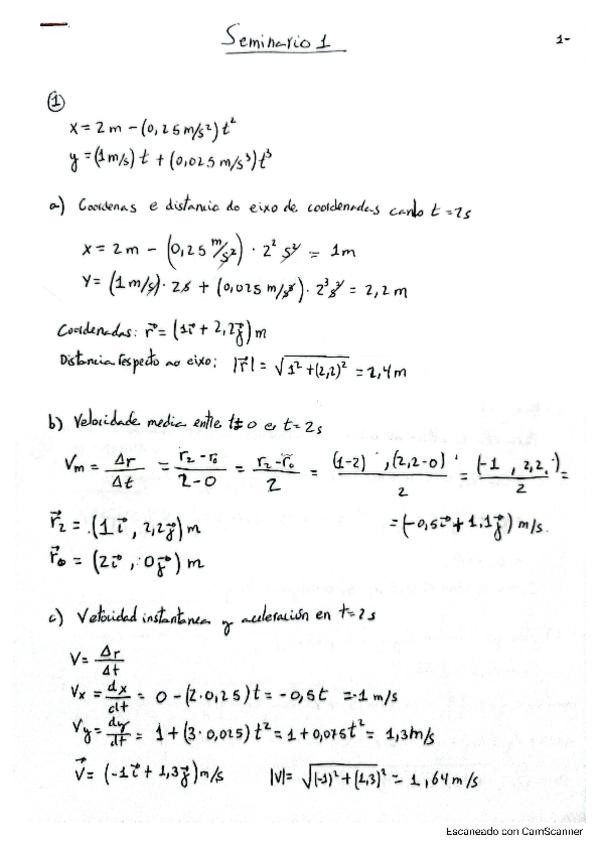 Seminario 1
1-
①
x = 2 m - (0,25 m/s²) t²
y = (1 m/s) t + (0,025 m/s³) t³
a) Coordenas e distancia do eixo de coordenadas cando t = 2s
x = 2 m - (0,25 m/s²) · 2² s² = 1 m
Y = (1 m/s) · 2 s + (0,025 m/s³) · 2³ s³ = 2,2 m
Coordenadas: r⃗ = (1i⃗ + 2,2j⃗) m
Distancia respecto ao eixo: |r⃗| = √1² + (2,2)² = 2,4 m
b) Velocidade media entre t = 0 e t = 2s
Vm = Δr/Δt = r₂ - r₀/2 - 0 = r₂ - r₀/2 = (1-2), (2,2-0)/2 = (-1, 2,2)/2 =
r⃗₂ = (1i⃗, 2,2j⃗) m = (-0,5i⃗ + 1,1j⃗) m/s.
r⃗₀ = (2i⃗, 0j⃗) m
c) Velocidad instantanea y aceleración en t = 2s
V = Δr/Δt
Vx = dx/dt = 0 - (2·0,25) t = -0,5t = -1 m/s
Vy = dy/dt = 1 + (3·0,025) t² = 1 + 0,075t² = 1,3 m/s
V⃗ = (-1i⃗ + 1,3j⃗) m/s |V| = √(-1)² + (1,3)² = 1,64 m/s
Escaneado con CamScanner